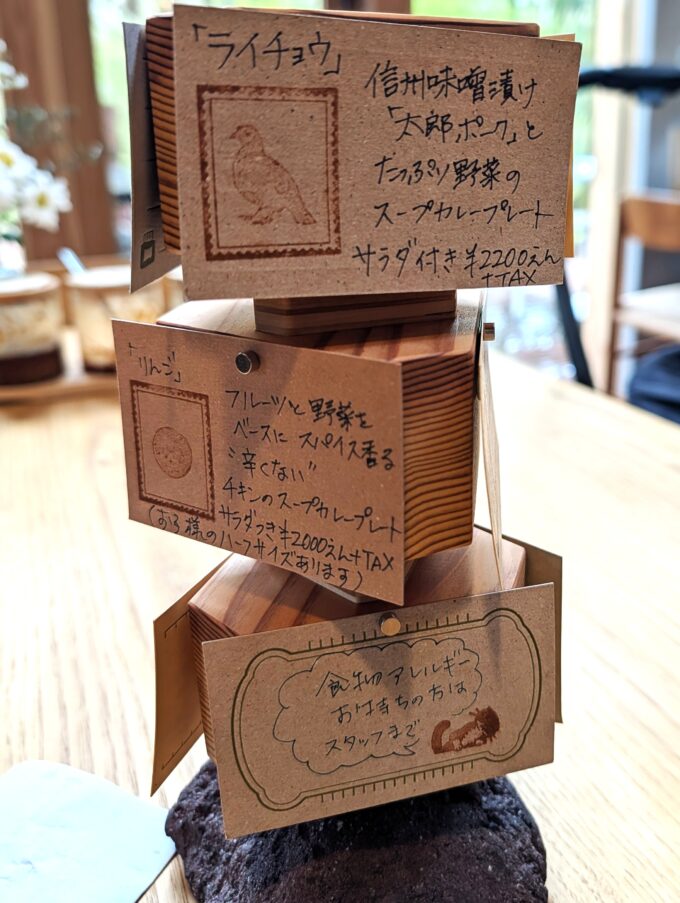 「ライチョウ」
信州味噌漬け
「太郎ポーク」と
たっぷり野菜の
スープカレープレート
サラダ付き ¥2200えん
+TAX
「りんご」
フルーツと野菜を
ベースに スパイス香る
"辛くない"
チキンのスープカレープレート
サラダつき ¥2000えん+TAX
(お子様のハーフサイズあります)
食物アレルギー
お持ちの方は
スタッフまで